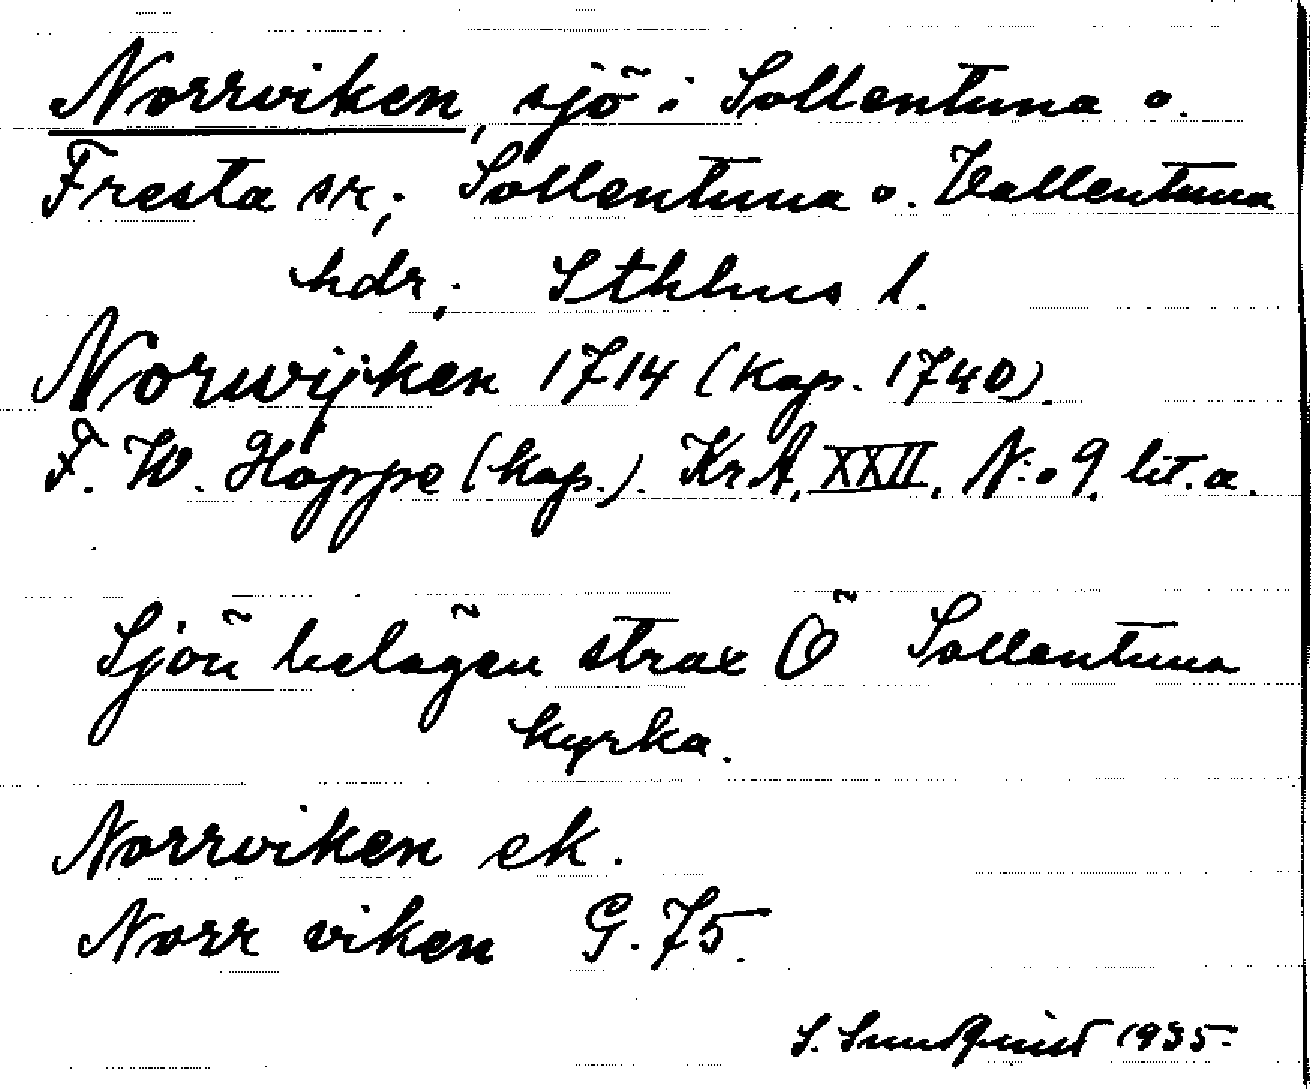 Norrviken, sjö i Sollentuna o.
Fresta sr; Sollentuna o. Vallentuna
hdr; Sthlms l.
Norwijken 1714 (Kop. 1740).
F. W. Hoppe (kop.). KrA, XXII, N:o 9, lit. a.
Sjön belägen strax Ö Sollentuna
kyrka.
Norrviken ek.
Norr viken G. 75.
S. Sundqvist 1935.